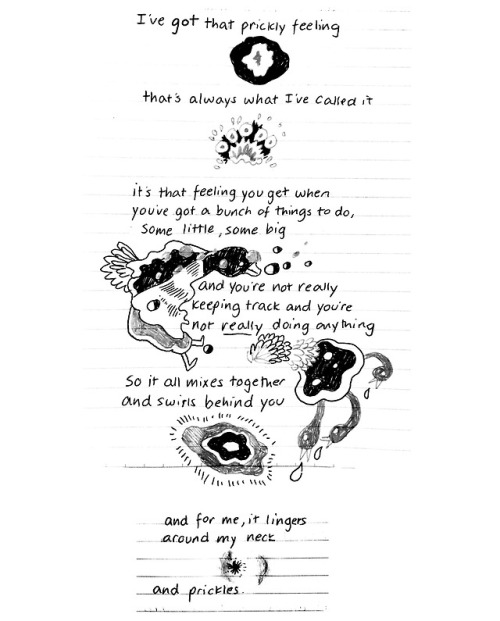 I've got that prickly feeling
that's always what I've called it
it's that feeling you get when
you've got a bunch of things to do,
some little, some big
and you're not really
keeping track and you're
not really doing anything
So it all mixes together
and swirls behind you
and for me, it lingers
around my neck
and prickles.